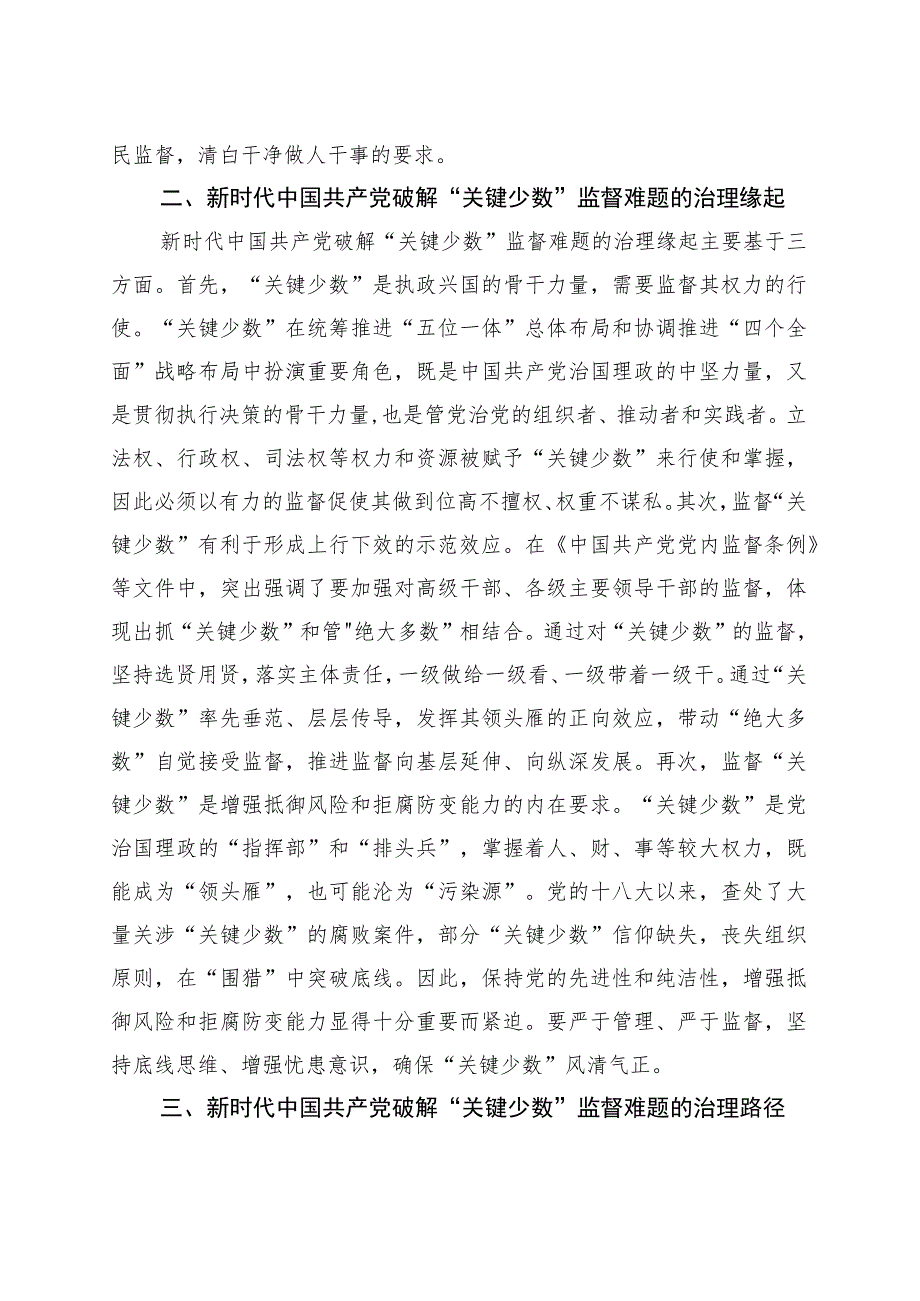 民监督，清白干净做人干事的要求。
二、新时代中国共产党破解“关键少数”监督难题的治理缘起
新时代中国共产党破解“关键少数”监督难题的治理缘起主要基于三
方面。首先，“关键少数”是执政兴国的骨干力量，需要监督其权力的行
使。“关键少数”在统筹推进“五位一体”总体布局和协调推进“四个全
面”战略布局中扮演重要角色，既是中国共产党治国理政的中坚力量，又
是贯彻执行决策的骨干力量,也是管党治党的组织者、推动者和实践者。立
法权、行政权、司法权等权力和资源被赋予“关键少数”来行使和掌握，
因此必须以有力的监督促使其做到位高不擅权、权重不谋私。其次，监督“关
键少数”有利于形成上行下效的示范效应。在《中国共产党党内监督条例》
等文件中，突出强调了要加强对高级干部、各级主要领导干部的监督，体
现出抓“关键少数”和管"绝大多数”相结合。通过对“关键少数”的监督，
坚持选贤用贤，落实主体责任，一级做给一级看、一级带着一级干。通过“关
键少数”率先垂范、层层传导，发挥其领头雁的正向效应，带动“绝大多
数”自觉接受监督，推进监督向基层延伸、向纵深发展。再次，监督“关
键少数”是增强抵御风险和拒腐防变能力的内在要求。“关键少数”是党
治国理政的“指挥部”和“排头兵”，掌握着人、财、事等较大权力，既
能成为“领头雁”，也可能沦为“污染源”。党的十八大以来，查处了大
量关涉“关键少数”的腐败案件，部分“关键少数”信仰缺失，丧失组织
原则，在“围猎”中突破底线。因此，保持党的先进性和纯洁性，增强抵
御风险和拒腐防变能力显得十分重要而紧迫。要严于管理、严于监督，坚
持底线思维、增强忧患意识，确保“关键少数”风清气正。
三、新时代中国共产党破解“关键少数”监督难题的治理路径